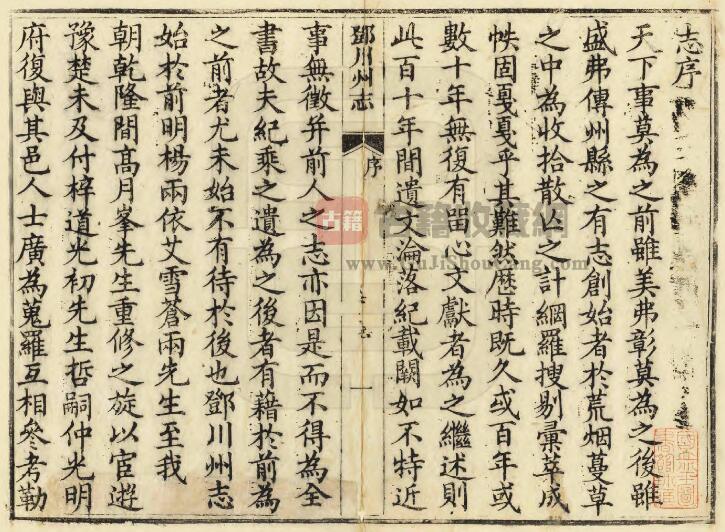 志序
天下事莫為之前雖美弗彰莫為之後雖
盛弗傳州縣之有志創始者於荒烟蔓草
之中為收拾散亾之計網羅搜剔彙萃成
帙固戛戛乎其難然歷時既久或百年或
數十年無復有畱心文獻者為之繼述則
此百十年間遺文淪落紀載闕如不特近
鄧川州志
序
一
事無徵并前人之志亦因是而不得為全
書故夫紀乘之遺為之後者有藉於前為
之前者尤未始不有待於後也鄧川州志
始於前明楊兩依艾雪蒼兩先生至我
朝乾隆間高月峯先生重修之旋以宦遊
豫楚未及付梓道光初先生哲嗣仲光明
府復與其邑人士廣為蒐羅互相參考勒
古籍
古籍收藏網
www.GuJiShouCang.com